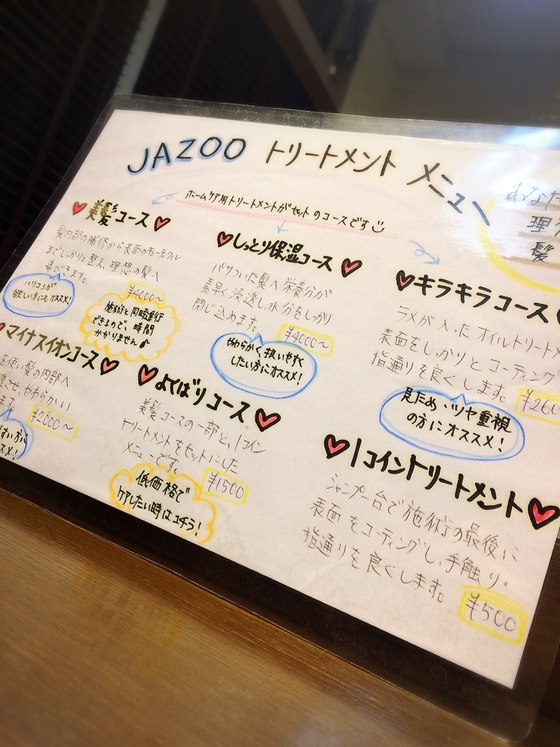 JAZOO トリートメント メニュー
あなた
理
髪
ホームケア用トリートメントがセットのコースです
美髪コース
髪内部の補修から表面のキューティクル
までしっかりと整え、理想の髪へ
導きます。
ハリコシが
欲しい方にもオススメ!
施術も同時進行
できるので、時間
かかりません
しっとり保湿コース
パサついた髪へ栄養分が
素早く浸透し水分をしっかり
閉じ込めます。
¥4000〜
やわらかく、扱いやすく
したい方にオススメ!
キラキラコース
ラメが入ったオイルトリートメン
表面をしっかりとコーティング
指通りを良くします。
¥260
見ため、ツヤ重視
の方にオススメ!
マイナスイオンコース
髪の内部へ
やわらかい
¥2000〜
よくばりコース
美髪コースの一部と、1コイン
トリートメントをセットにした
メニューです。
¥1500
低価格で
ケアしたい時はコチラ!
1コイントリートメント
シャンプー台で施術の最後に
表面をコーティングし、手触り。
指通りを良くします。
¥500